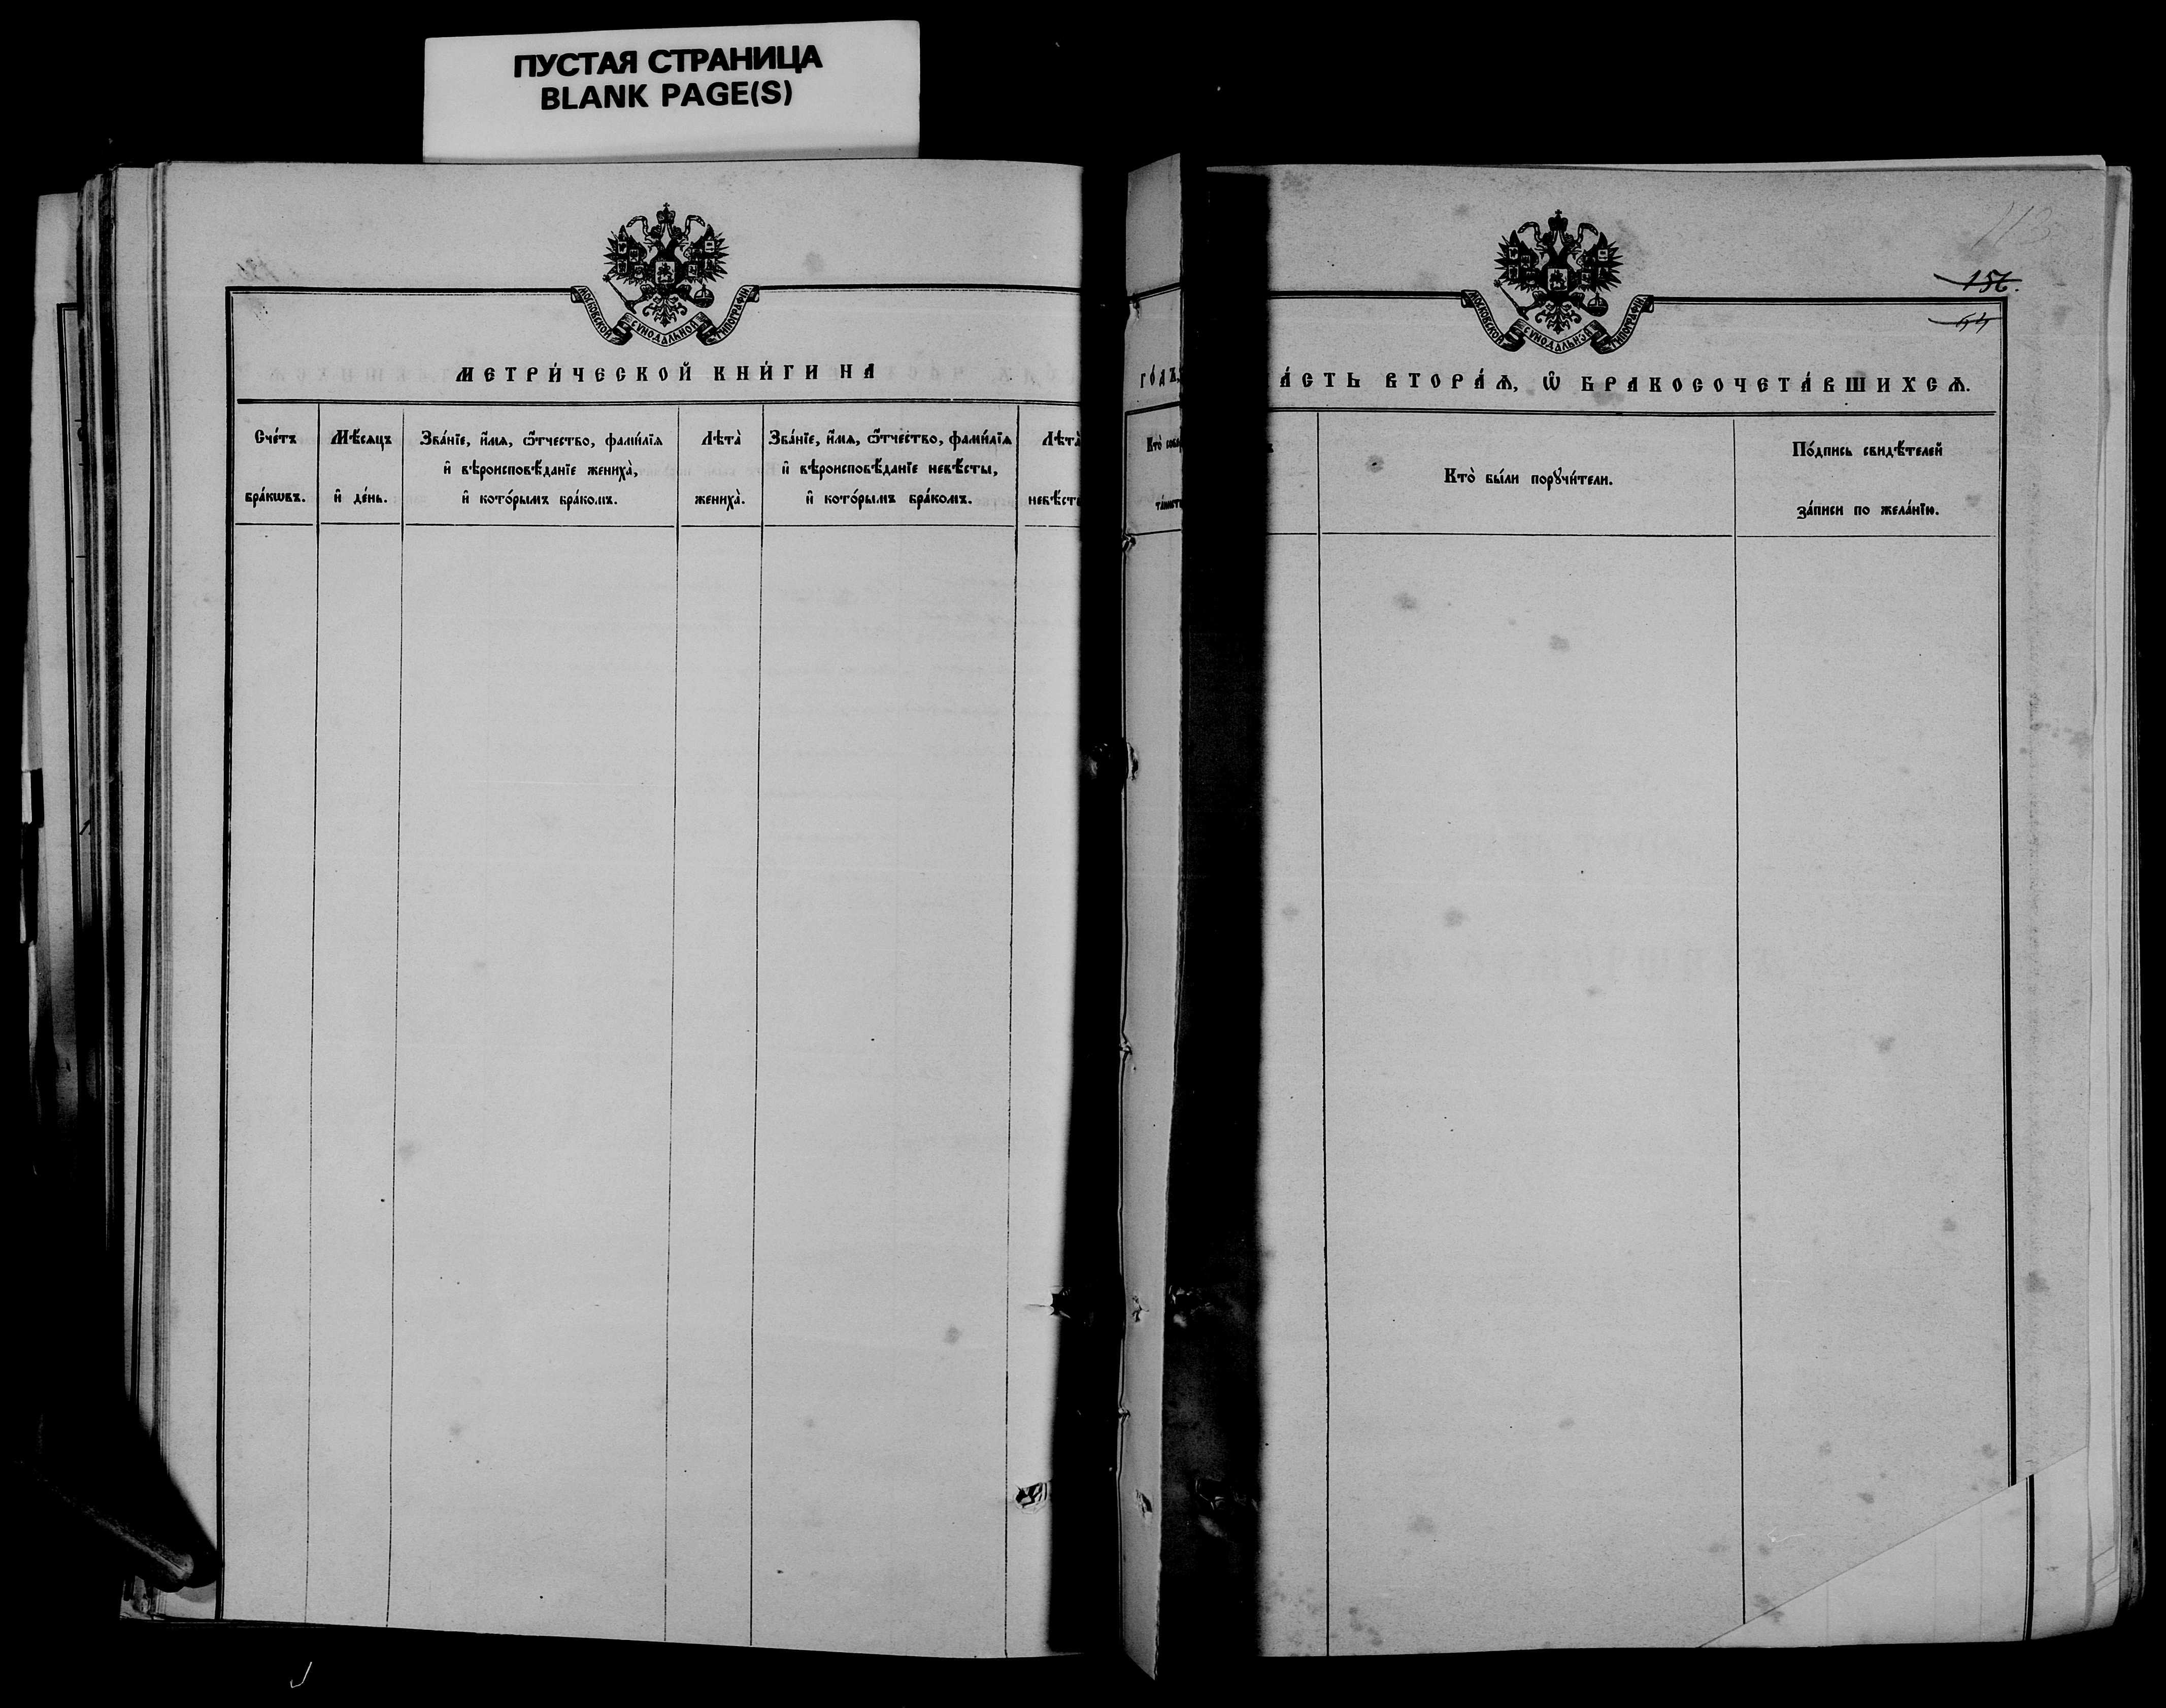 ПУСТАЯ СТРАНИЦА
BLANK PAGE(S)
МОСКОВСКОЙ СѴНОДАЛЬНОЙ ТИПОГРАФІИ
МЕТРИ́ЧЕСКОЙ КНИ́ГИ НА
Сче́тъ
бра́кѡвъ.
Мѣ́сѧцъ
и҆ де́нь.
Зва́нїе, и҆́мѧ, ѻ҆́тчество, фами́лїѧ
и҆ вѣроисповѣ́данїе жениха̀,
и҆ кото́рымъ бра́комъ.
Лѣта̀
жениха̀.
Зва́нїе, и҆́мѧ, ѻ҆́тчество, фами́лїѧ
и҆ вѣроисповѣ́данїе невѣ́сты,
и҆ кото́рымъ бра́комъ.
Лѣта̀
невѣст
ГО́ДЪ,
Кто̀ сов
та́инст
МОСКОВСКОЙ СѴНОДАЛЬНОЙ ТИПОГРАФІИ
156.
А́СТЬ ВТОРА́Ѧ, Ѡ҆ БРАКОСОЧЕТА́ВШИХСѦ.
Кто̀ бы́ли порꙋчи́тели.
По́дпись свидѣ́телей
за́писи по жела́нїю.